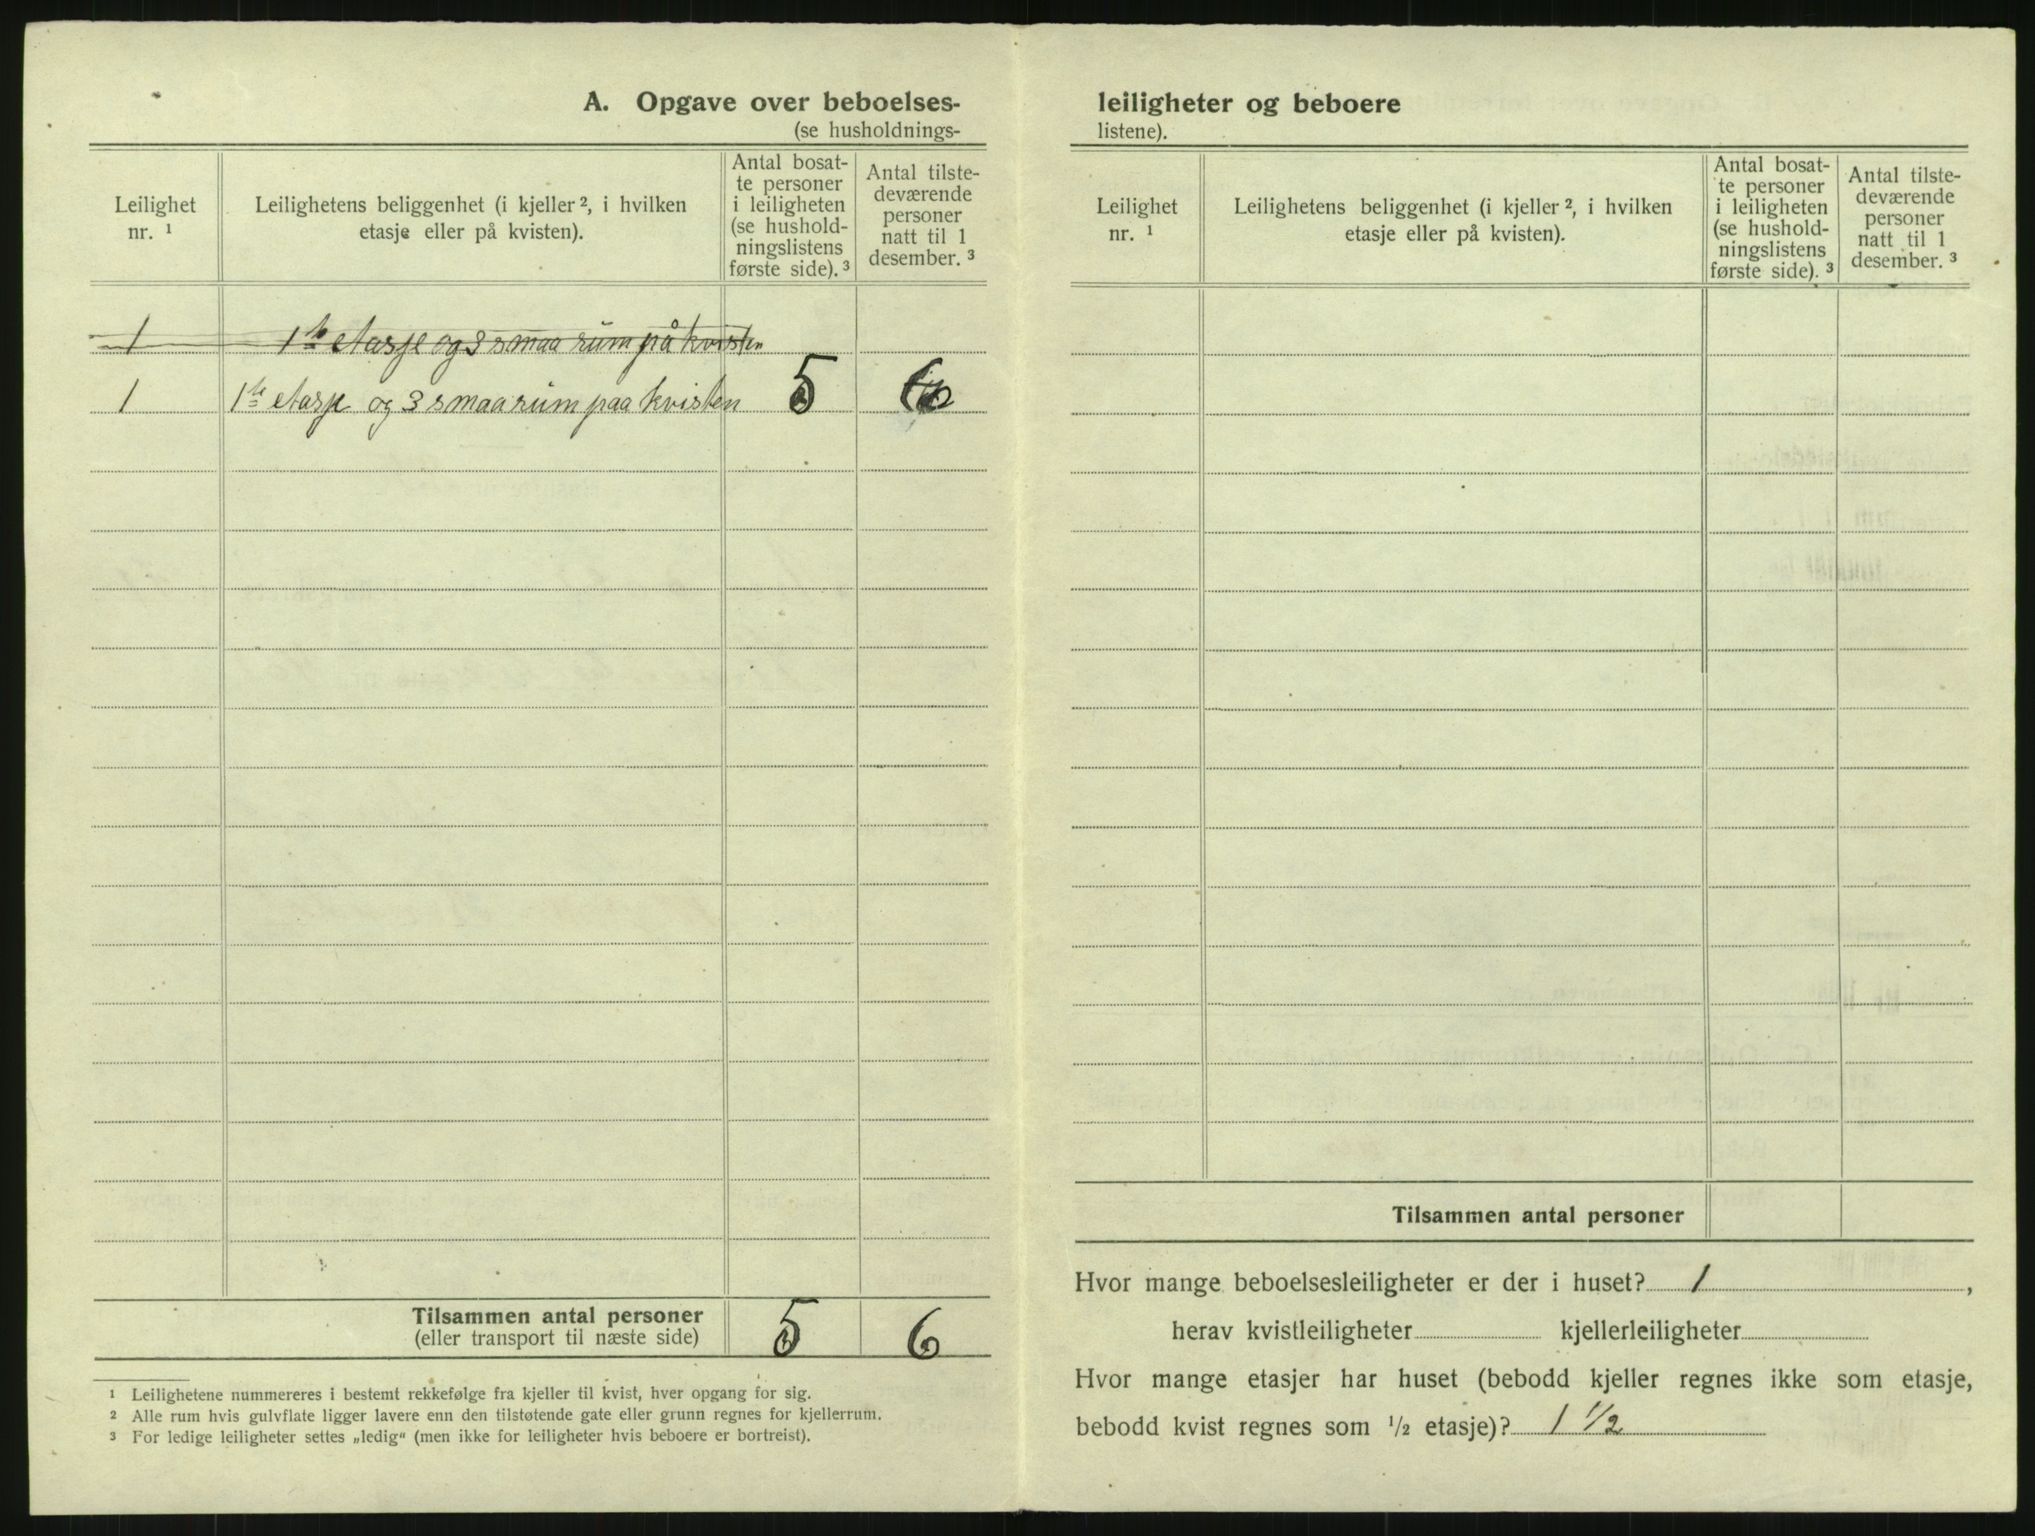 A. Opgave over beboelses-
(se husholdnings-
Leilighet
nr. ¹
Leilighetens beliggenhet (i kjeller ², i hvilken
etasje eller på kvisten).
Antal bosat-
te personer
i leiligheten
(se hushold-
ningslistens
første side). ³
Antal tilste-
deværende
personer
natt til 1
desember. ³
1 1ste etasje og 3 smaa rum på kvisten
1 1ste etasje og 3 smaa rum paa kvisten 5 6
Tilsammen antal personer 5 6
(eller transport til næste side)
¹ Leilighetene nummereres i bestemt rekkefølge fra kjeller til kvist, hver opgang for sig.
² Alle rum hvis gulvflate ligger lavere enn den tilstøtende gate eller grunn regnes for kjellerrum.
³ For ledige leiligheter settes „ledig“ (men ikke for leiligheter hvis beboere er bortreist).
leiligheter og beboere
listene).
Leilighet
nr. ¹
Leilighetens beliggenhet (i kjeller ², i hvilken
etasje eller på kvisten).
Antal bosat-
te personer
i leiligheten
(se hushold-
ningslistens
første side). ³
Antal tilste-
deværende
personer
natt til 1
desember. ³
Tilsammen antal personer
Hvor mange beboelsesleiligheter er der i huset? 1 ,
herav kvistleiligheter kjellerleiligheter
Hvor mange etasjer har huset (bebodd kjeller regnes ikke som etasje,
bebodd kvist regnes som ½ etasje)? 1 1/2